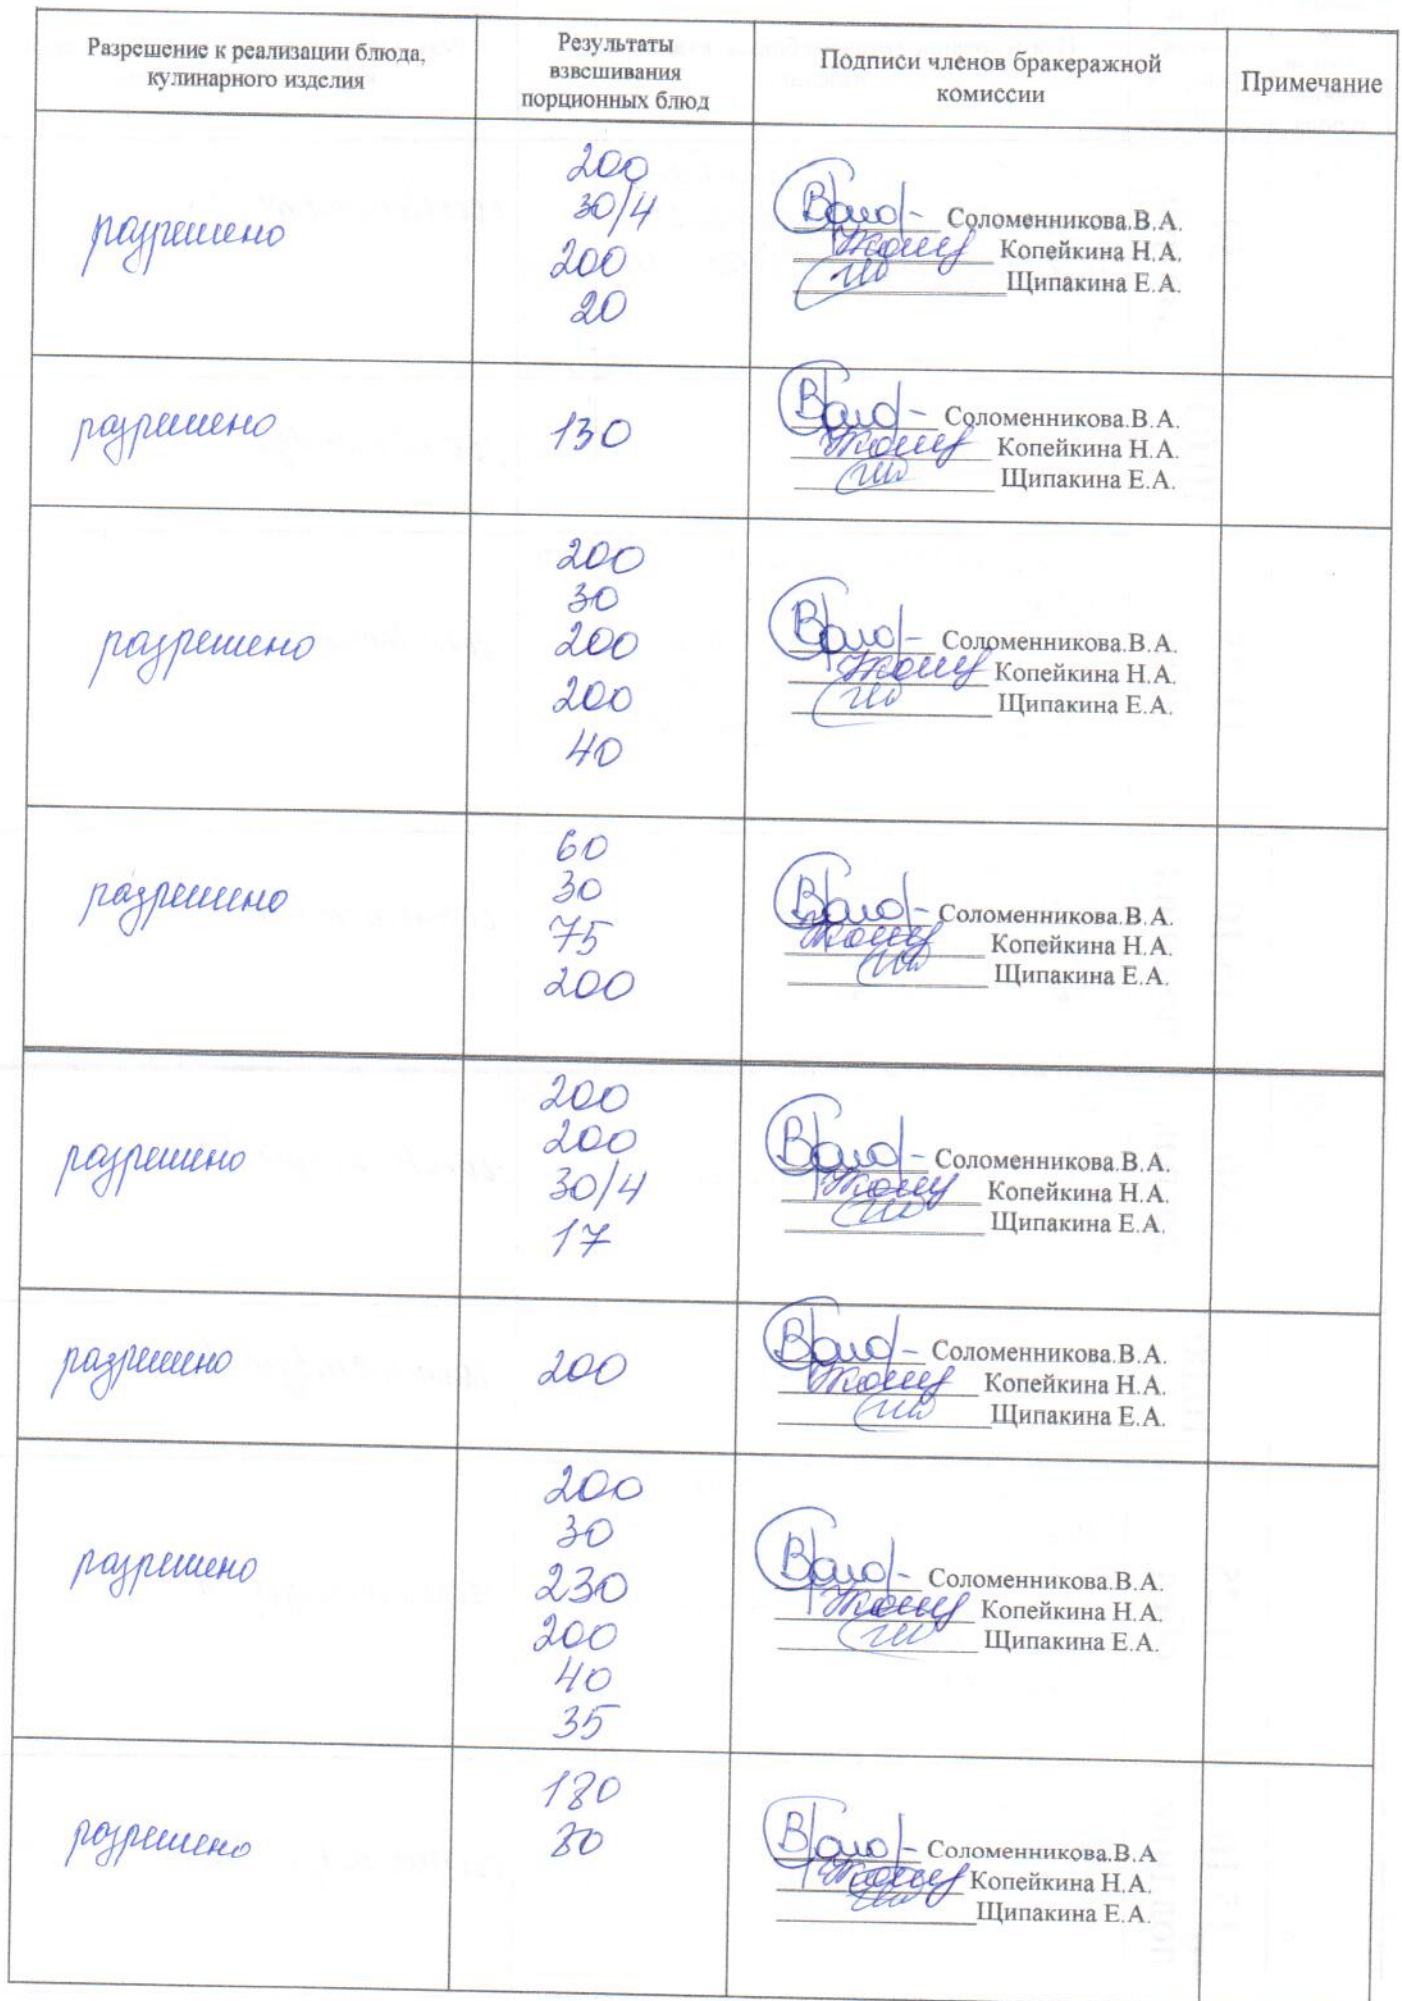 Разрешение к реализации блюда,
кулинарного изделия
Результаты
взвешивания
порционных блюд
Подписи членов бракеражной
комиссии
Примечание
разрешено
200
30/4
200
20
Соломенникова.В.А.
Копейкина Н.А.
Щипакина Е.А.
разрешено
130
Соломенникова.В.А.
Копейкина Н.А.
Щипакина Е.А.
разрешено
200
30
200
200
40
Соломенникова.В.А.
Копейкина Н.А.
Щипакина Е.А.
разрешено
60
30
75
200
Соломенникова.В.А.
Копейкина Н.А.
Щипакина Е.А.
разрешено
200
200
30/4
17
Соломенникова.В.А.
Копейкина Н.А.
Щипакина Е.А.
разрешено
200
Соломенникова.В.А.
Копейкина Н.А.
Щипакина Е.А.
разрешено
200
30
230
200
40
35
Соломенникова.В.А.
Копейкина Н.А.
Щипакина Е.А.
разрешено
180
80
Соломенникова.В.А
Копейкина Н.А.
Щипакина Е.А.